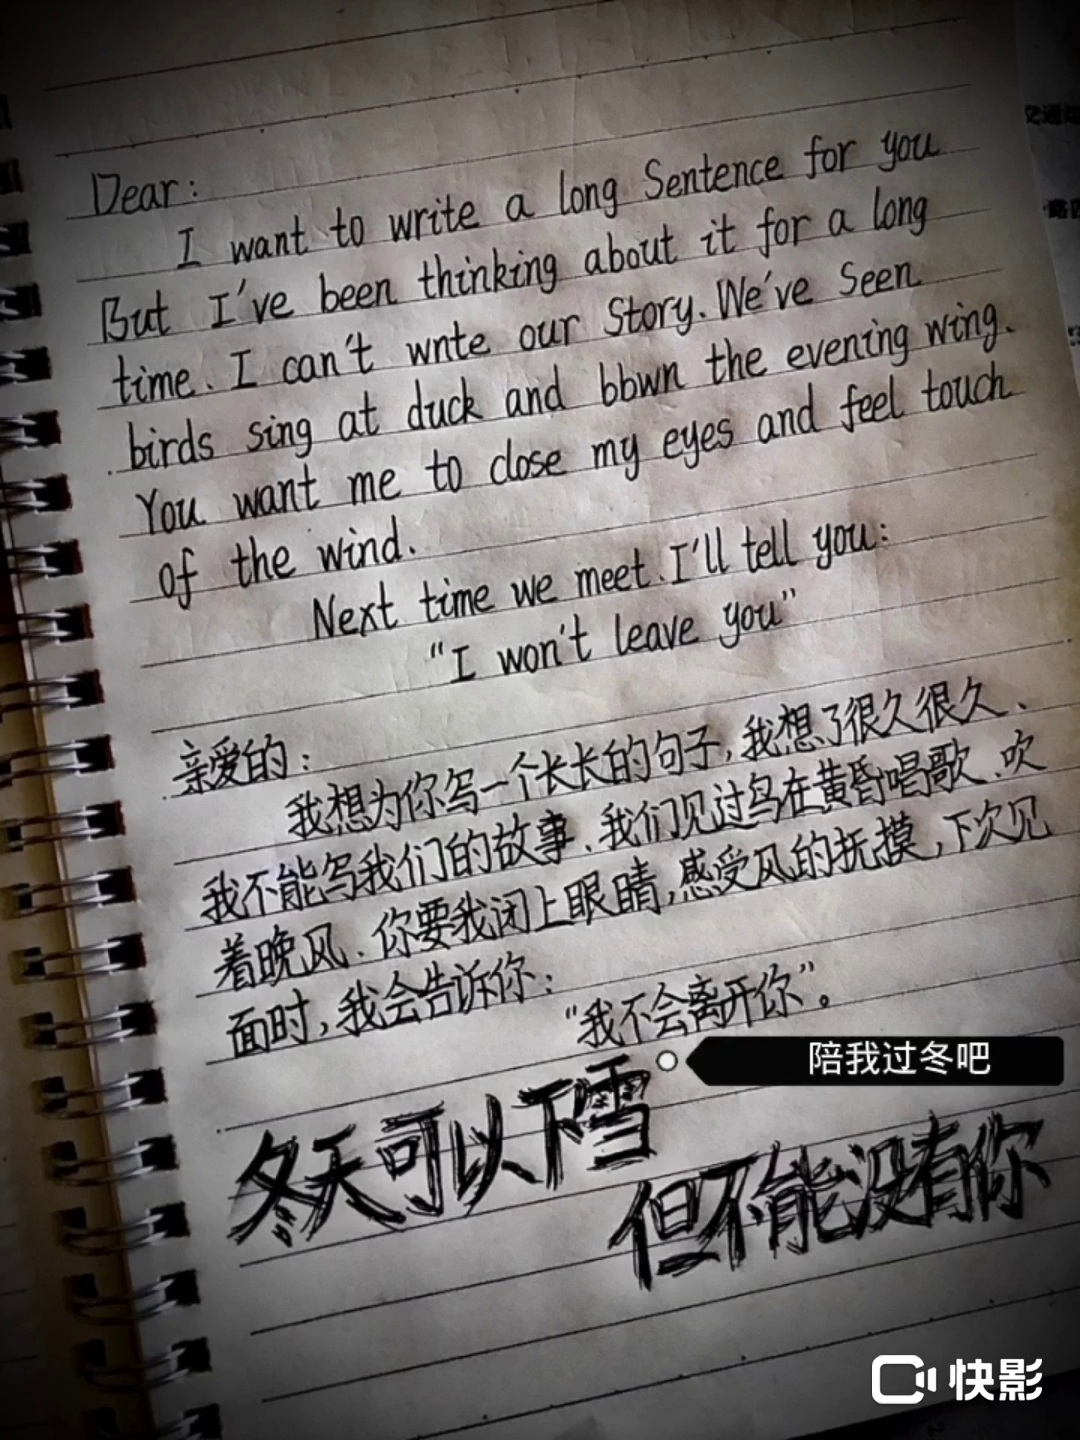 Dear:
I want to write a long Sentence for you
But I've been thinking about it for a long
time. I can't wnte our Story. We've Seen
birds sing at duck and bbwn the evening wing.
You want me to close my eyes and feel touch
of the wind.
Next time we meet. I'll tell you:
"I won't leave you"
亲爱的:
我想为你写一个长长的句子,我想了很久很久、
我不能写我们的故事、我们见过鸟在黄昏唱歌、吹
着晚风、你要我闭上眼睛,感受风的抚摸,下次见
面时,我会告诉你:
"我不会离开你"。
陪我过冬吧
冬天可以下雪
但不能没有你
快影